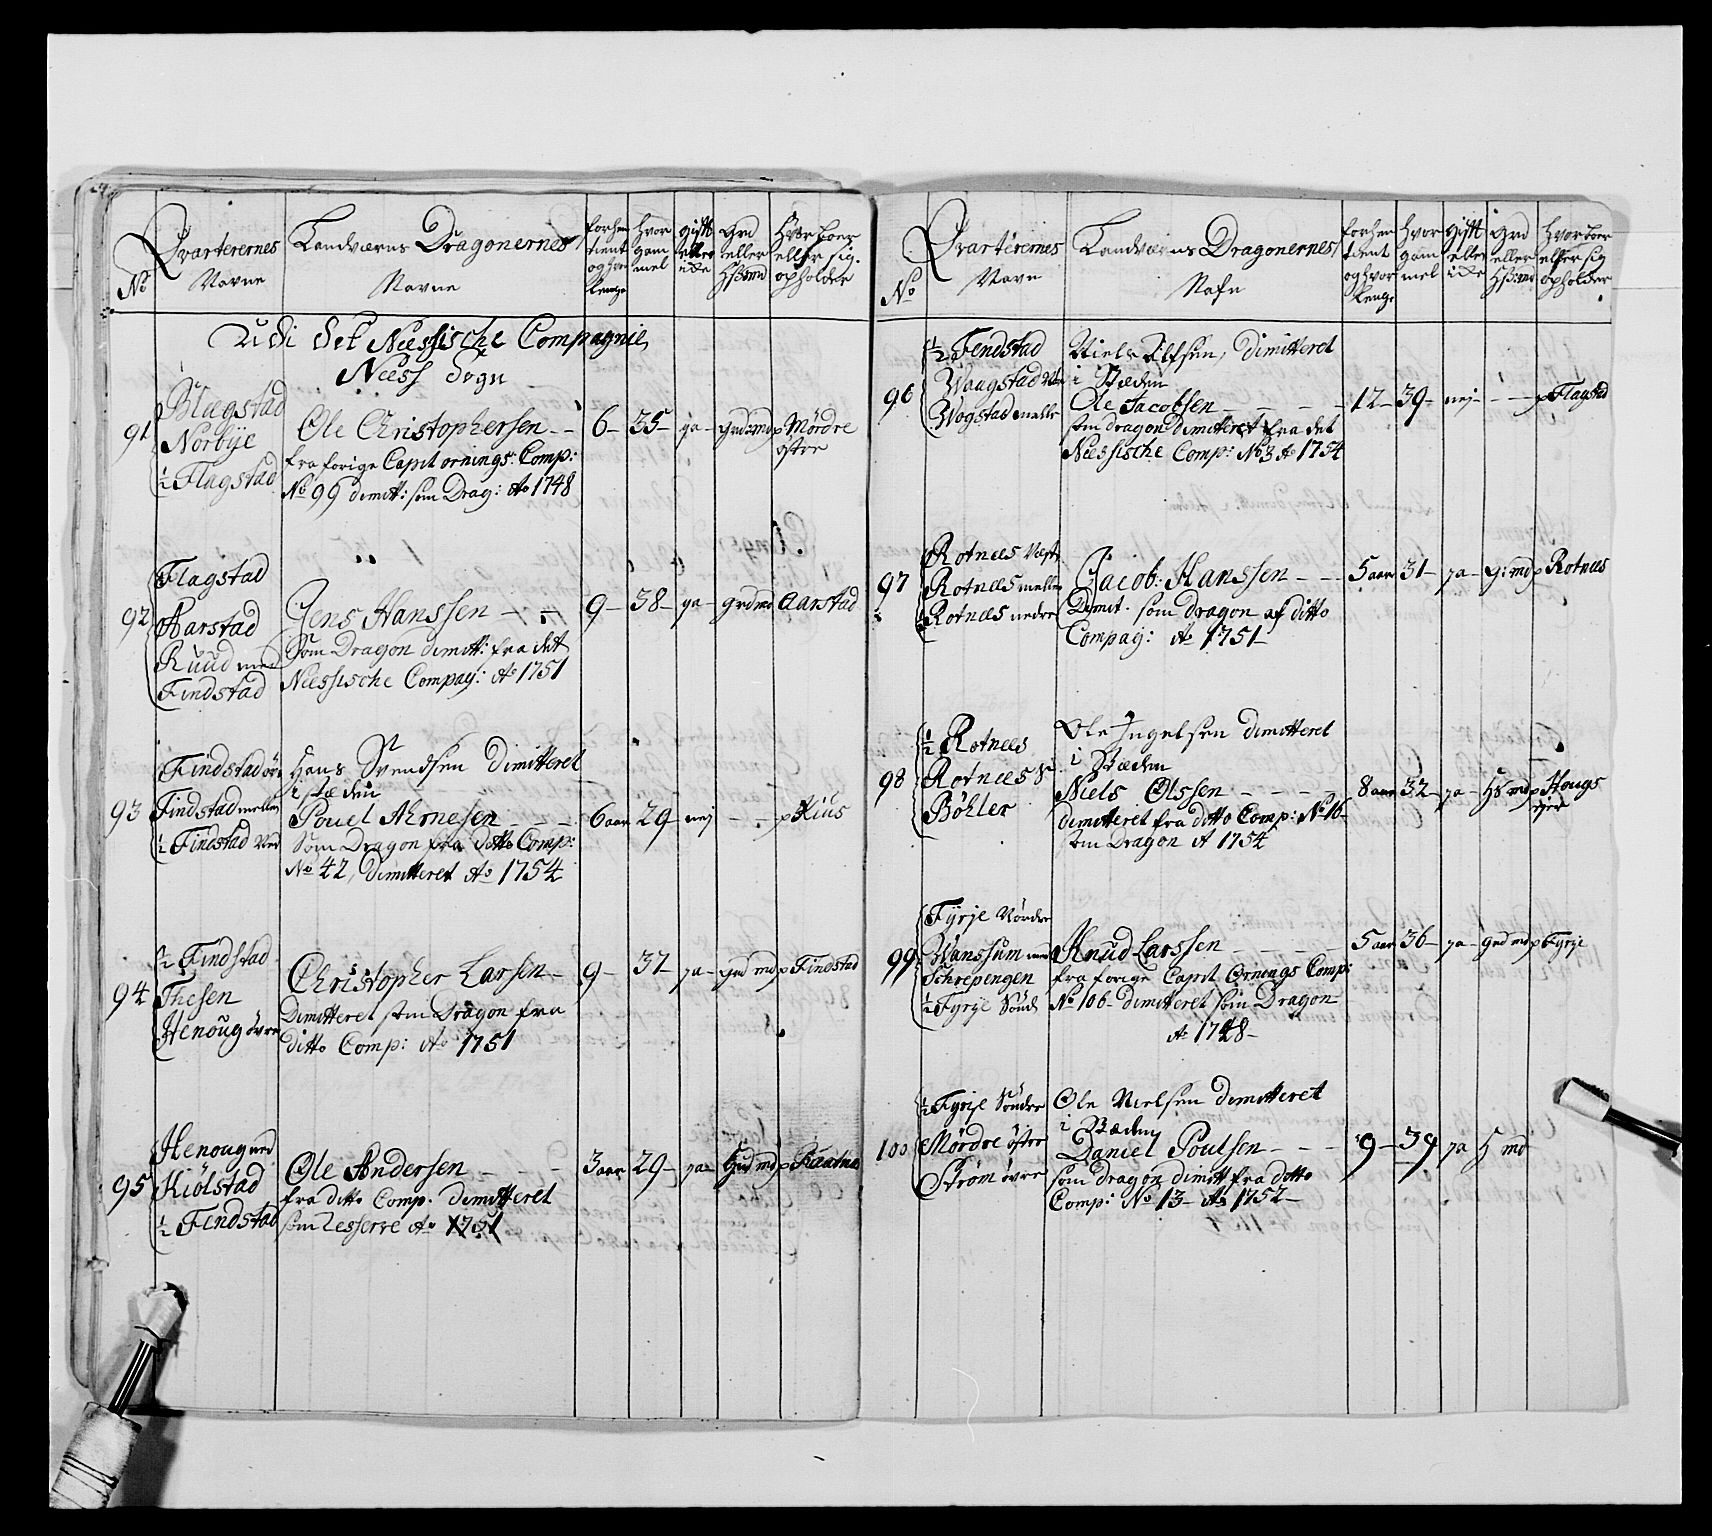 No
Qvarterernes
Navne
Landværns Dragonernes
Navne
forhen
tient
og hvor
lenge
Hvor
gam
mel
gift
eller
ikke
Grd
eller
Hßmd
Hvor boer
eller sig
opholder
Udi det Neessische Compagnie
Neess Sogn
91
Blegstad
Norbye
½ Flagstad
Ole Christophersen - -
fra forige Capit ornings: Comp:
No 99 dimitt: som Drag: Ao 1748
6 - 35 - ja - grd: md p Mördre
østre
92
Flagstad
Aarstad
Ruud
Findstad
Jens Hanssen
Som Dragon dimitt: fra det
Neessische Compag: Ao 1751
9 - 38 - ja - grd md Aarstad
93
Findstad øv
Findstad mellem
½ Findstad Ned
Hans Svendsen Dimitteret
i stæden
Pouel Arnesen - - -
Som Dragon fra ditto Comp:
No 42, Dimitteret Ao 1754
6 aar 29 - nej - - p Kius
94
½ Findstad
Thesen
Henoug øvre
Christopher Larsen -
Dimitteret som Dragon fra
ditto Comp: Ao 1751
9 - 37 - ja - grd md p Findstad
95
Henoug ned
Kiölstad
½ Fendstad
Ole Andersen - - -
fra ditto Comp. dimitteret
som Resserve Ao 1751
3 aar 29 - ja - Grd md p
No
Qvarterernes
Navn
Landværns Dragonernes
Nafn
forhen
tient
og hvor
lenge
Hvor
gam
mel
gift
eller
ikke
Grd
eller
Hßmd
Hvor boer
eller sig
opholder
96
½ Fendstad
Waagstad
Wogstad melle
Niels Olfsen, dimitteret
i Stæden
Ole Jacobsen - - - -
som dragon dimitteret fra det
Neessische Comp: No 3 Ao 1754
12 - 39 - nej - - - p Flagstad
97
Rotnees Vest
Rotnees mellem
½ Rotnees nedre
Jacob Hanssen - -
Dimit. som dragon af ditto
Compag: Ao 1751
5 aar 31 - ja - g: md p Rotnees
98
½ Rotnees
Rotnees
Böhler
Ole Ingelsen dimitteret
i Stæden
Niels Olssen - - - -
dimitteret fra ditto Comp: No 16
som Dragon A 1754
8 aar 32 - ja - Hs md p Hougs
99
Fyrje Nördre
Wanssum
Schrepengen
½ Fyrje Sönd
Knud Larssen - - - -
fra forige Capit Ornings Comp:
No 106 - dimitteret som Dragon
Ao 1748 -
5 aar 36 - ja - grd md p Fyrje
100
½ Fyrje Söndre
Mördre øster
Ström øvre
Ole Nielsen dimitteret
i Stæden
Daniel Poulsen - - -
som dragon dimitt fra ditto
Comp: No 13 - Ao 1752 -
9 - 39 ja H md